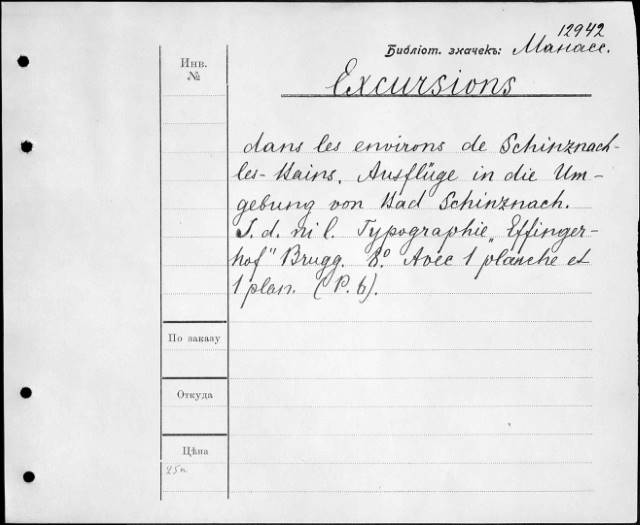 12942
Библіот. значекъ: Манасс.
Инв. №
Excursions
dans les environs de Schinznach-
les-Bains. Ausflüge in die Um-
gebung von Bad Schinznach.
S. d. ni l. Typographie „Effinger-
hof" Brugg. 8°. Avec 1 planche et
1 plan. (P. 6).
По заказу
Откуда
Цѣна
25к